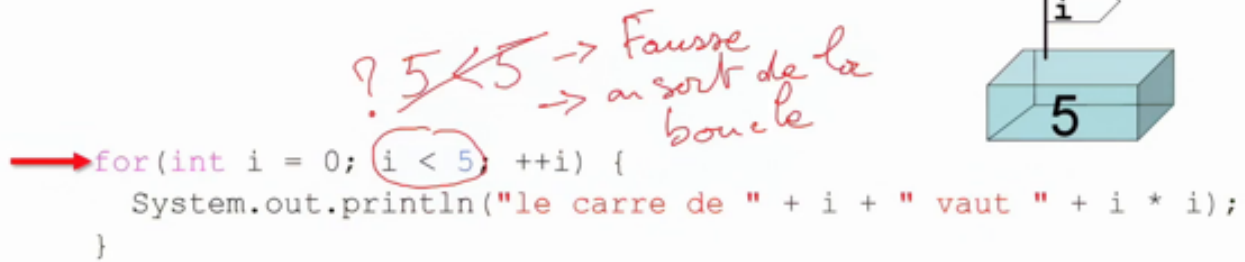 i
? 5 < 5 -> Fausse
-> on sort de la
boucle
5
for(int i = 0; i < 5; ++i) {
System.out.println("le carre de " + i + " vaut " + i * i);
}